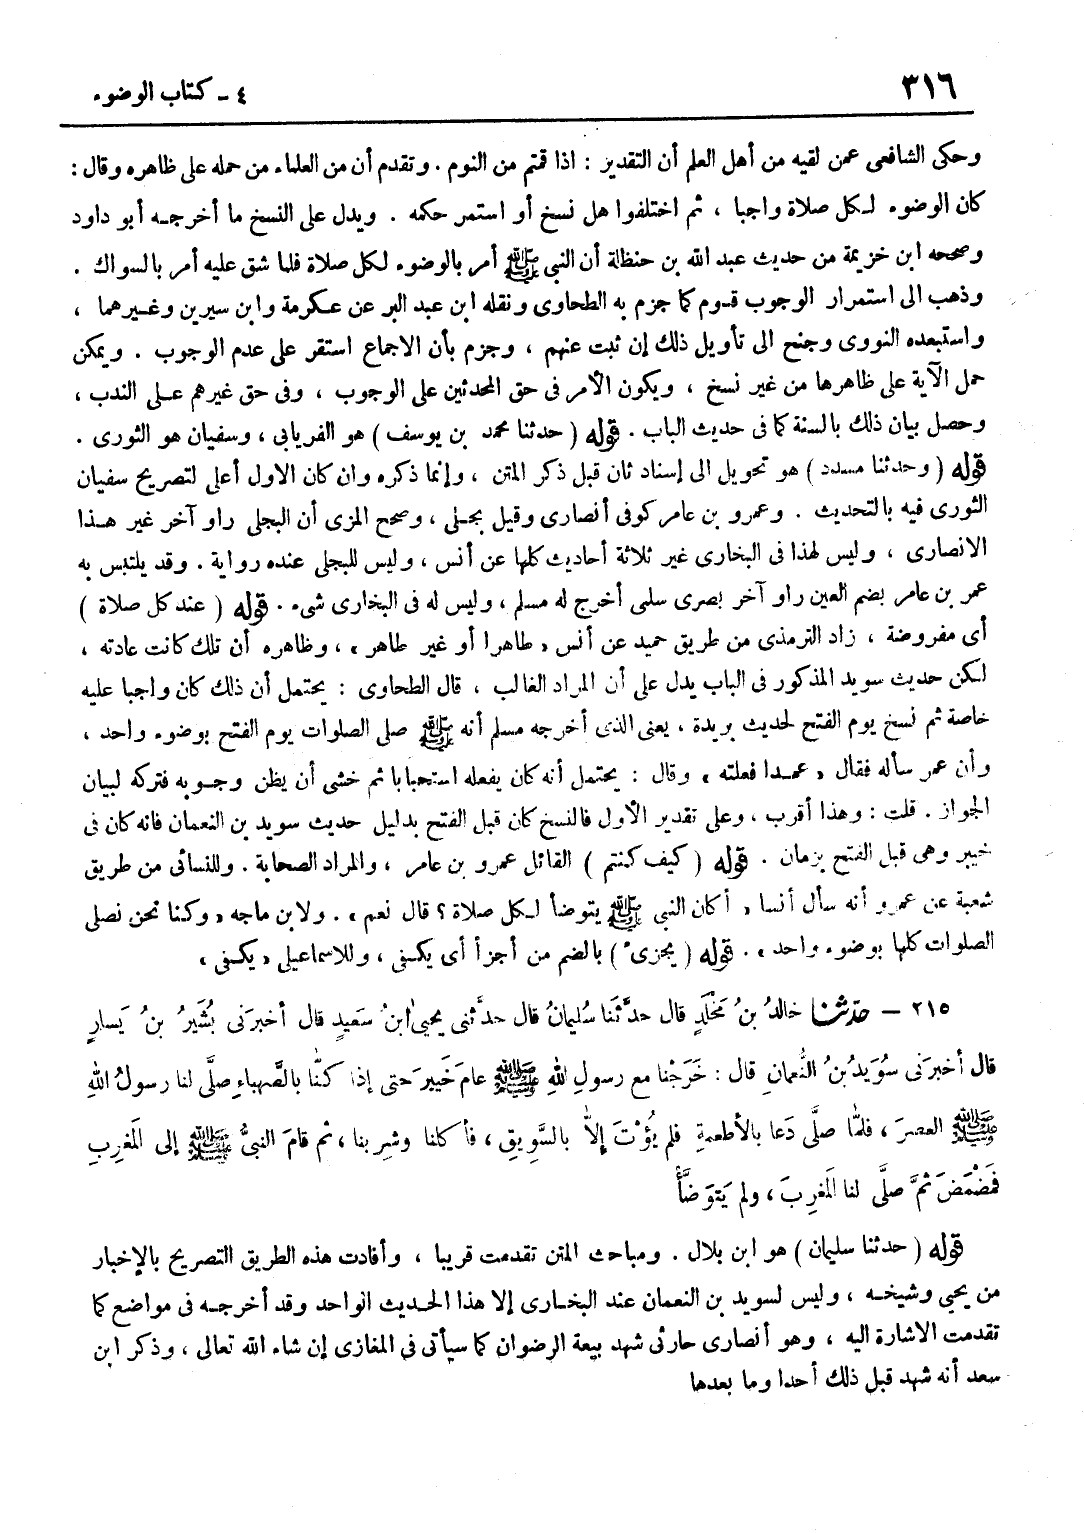 ٣١٦
٤ ـ كتاب الوضوء
وحكى الشافعى عمن لقيه من أهل العلم أن التقدير : اذا قمتم من النوم . وتقدم أن من العلماء من حمله على ظاهره وقال :
كان الوضوء لـكل صلاة واجبا ، ثم اختلفوا هل نسخ أو استمر حكمه . ويدل على النسخ ما أخرجـه أبو داود
وصححه ابن خزيمة من حديث عبد الله بن حنظلة أن النبي ﷺ أمر بالوضوء لكل صلاة فلما شق عليه أمر بالسواك .
وذهب الى استمرار الوجوب قـوم كما جزم به الطحاوى ونقله ابن عبد البر عن عـكرمة وابن سيرين وغـيرهما ،
واستبعده النووى وجنح الى تأويل ذلك إن ثبت عنهم ، وجزم بأن الاجماع استقر على عدم الوجوب . ويمكن
حمل الآية على ظاهرها من غير نسخ ، ويكون الأمر فى حق المحدثين على الوجوب ، وفى حق غيرهم عـلى الندب ،
وحصل بيان ذلك بالسنة كما فى حديث الباب . قوله ( حدثنا محمد بن يوسف ) هو الفريابي ، وسفيان هو الثورى .
قوله ( وحدثنا مسدد ) هو تحويل الى إسناد ثان قبل ذكر المتن ، وإنما ذكره وان كان الاول أعلى لتصريح سفيان
الثورى فيه بالتحديث . وعمرو بن عامر كوفى أنصارى وقيل بجـلى ، وصحح المزى أن البجلى راو آخر غير هـذا
الانصارى ، وليس لهذا فى البخارى غير ثلاثة أحاديث كلها عن أنس ، وليس للبجلى عنده رواية . وقد يلتبس به
عمر بن عامر بضم العين راو آخر بصرى سلمى أخرج له مسلم ، وليس له فى البخارى شىء . قوله ( عند كل صلاة )
أى مفروضة ، زاد الترمذى من طريق حميد عن أنس « طاهرا أو غير طاهر » ، وظاهره أن تلك كانت عادته ،
لـكن حديث سويد المذكور فى الباب يدل على أن المراد الغالب ، قال الطحاوى : يحتمل أن ذلك كان واجبا عليه
خاصة ثم نسخ يوم الفتح لحديث بريدة ، يعنى الذى أخرجه مسلم أنه ﷺ صلى الصلوات يوم الفتح بوضوء واحد ،
وأن عمر سأله فقال « عمـدا فعلته » وقال : يحتمل أنه كان يفعله استحبابا ثم خشى أن يظن وجـوبه فتركه لبيان
الجواز . قلت : وهذا أقرب ، وعلى تقدير الأول فالنسخ كان قبل الفتح بدليل حديث سويد بن النعمان فانه كان فى
خيبر وهى قبل الفتح بزمان . قوله ( كيف كنتم ) القائل عمرو بن عامر ، والمراد الصحابة . وللنسائى من طريق
شعبة عن عمرو أنه سأل أنسا « أكان النبي ﷺ يتوضأ لـكل صلاة ؟ قال نعم » . ولابن ماجه « وكنا نحن نصلى
الصلوات كلها بوضوء واحد » . قوله ( يجزىء ) بالضم من أجزأ أى يكـفى ، وللاسماعيلى « يكـفى »
٢١٥ – حدثنا خالدُ بنُ مَخْلَدٍ قال حدَّثَنا سُليمانُ قال حدَّثنى يحيىٰ ابنُ سَعيدٍ قال أخبرَنى بُشَيرُ بنُ يَسارٍ
قال أخبرَنى سُوَيدُ بنُ النُّعمانِ قال : خَرَجْنا مع رسولِ اللهِ ﷺ عامَ خَيبرَ حتى إذا كنّا بالصَّهباءِ صلَّى لنا رسولُ اللهِ
ﷺ العصرَ ، فلمّا صلَّى دَعا بالأطعمةِ فلم يُؤْتَ إلاّ بالسَّويقِ ، فأكلنا وشربنا ، ثم قامَ النبيُّ ﷺ إلى المَغربِ
فمَضْمَضَ ثمَّ صلَّى لنا المَغربَ ، ولم يَتوَضَّأْ
قوله ( حدثنا سليمان ) هو ابن بلال . ومباحث المتن تقدمت قريبا ، وأفادت هذه الطريق التصريح بالإخبار
من يحيى وشيخـه ، وليس لسويد بن النعمان عند البخـارى إلا هذا الحـديث الواحد وقد أخرجـه فى مواضع كما
تقدمت الاشارة اليه ، وهو أنصارى حارثى شهد بيعة الرضوان كما سيأتى فى المغازى إن شاء الله تعالى ، وذكر ابن
سعد أنه شهد قبل ذلك أحدا وما بعدها